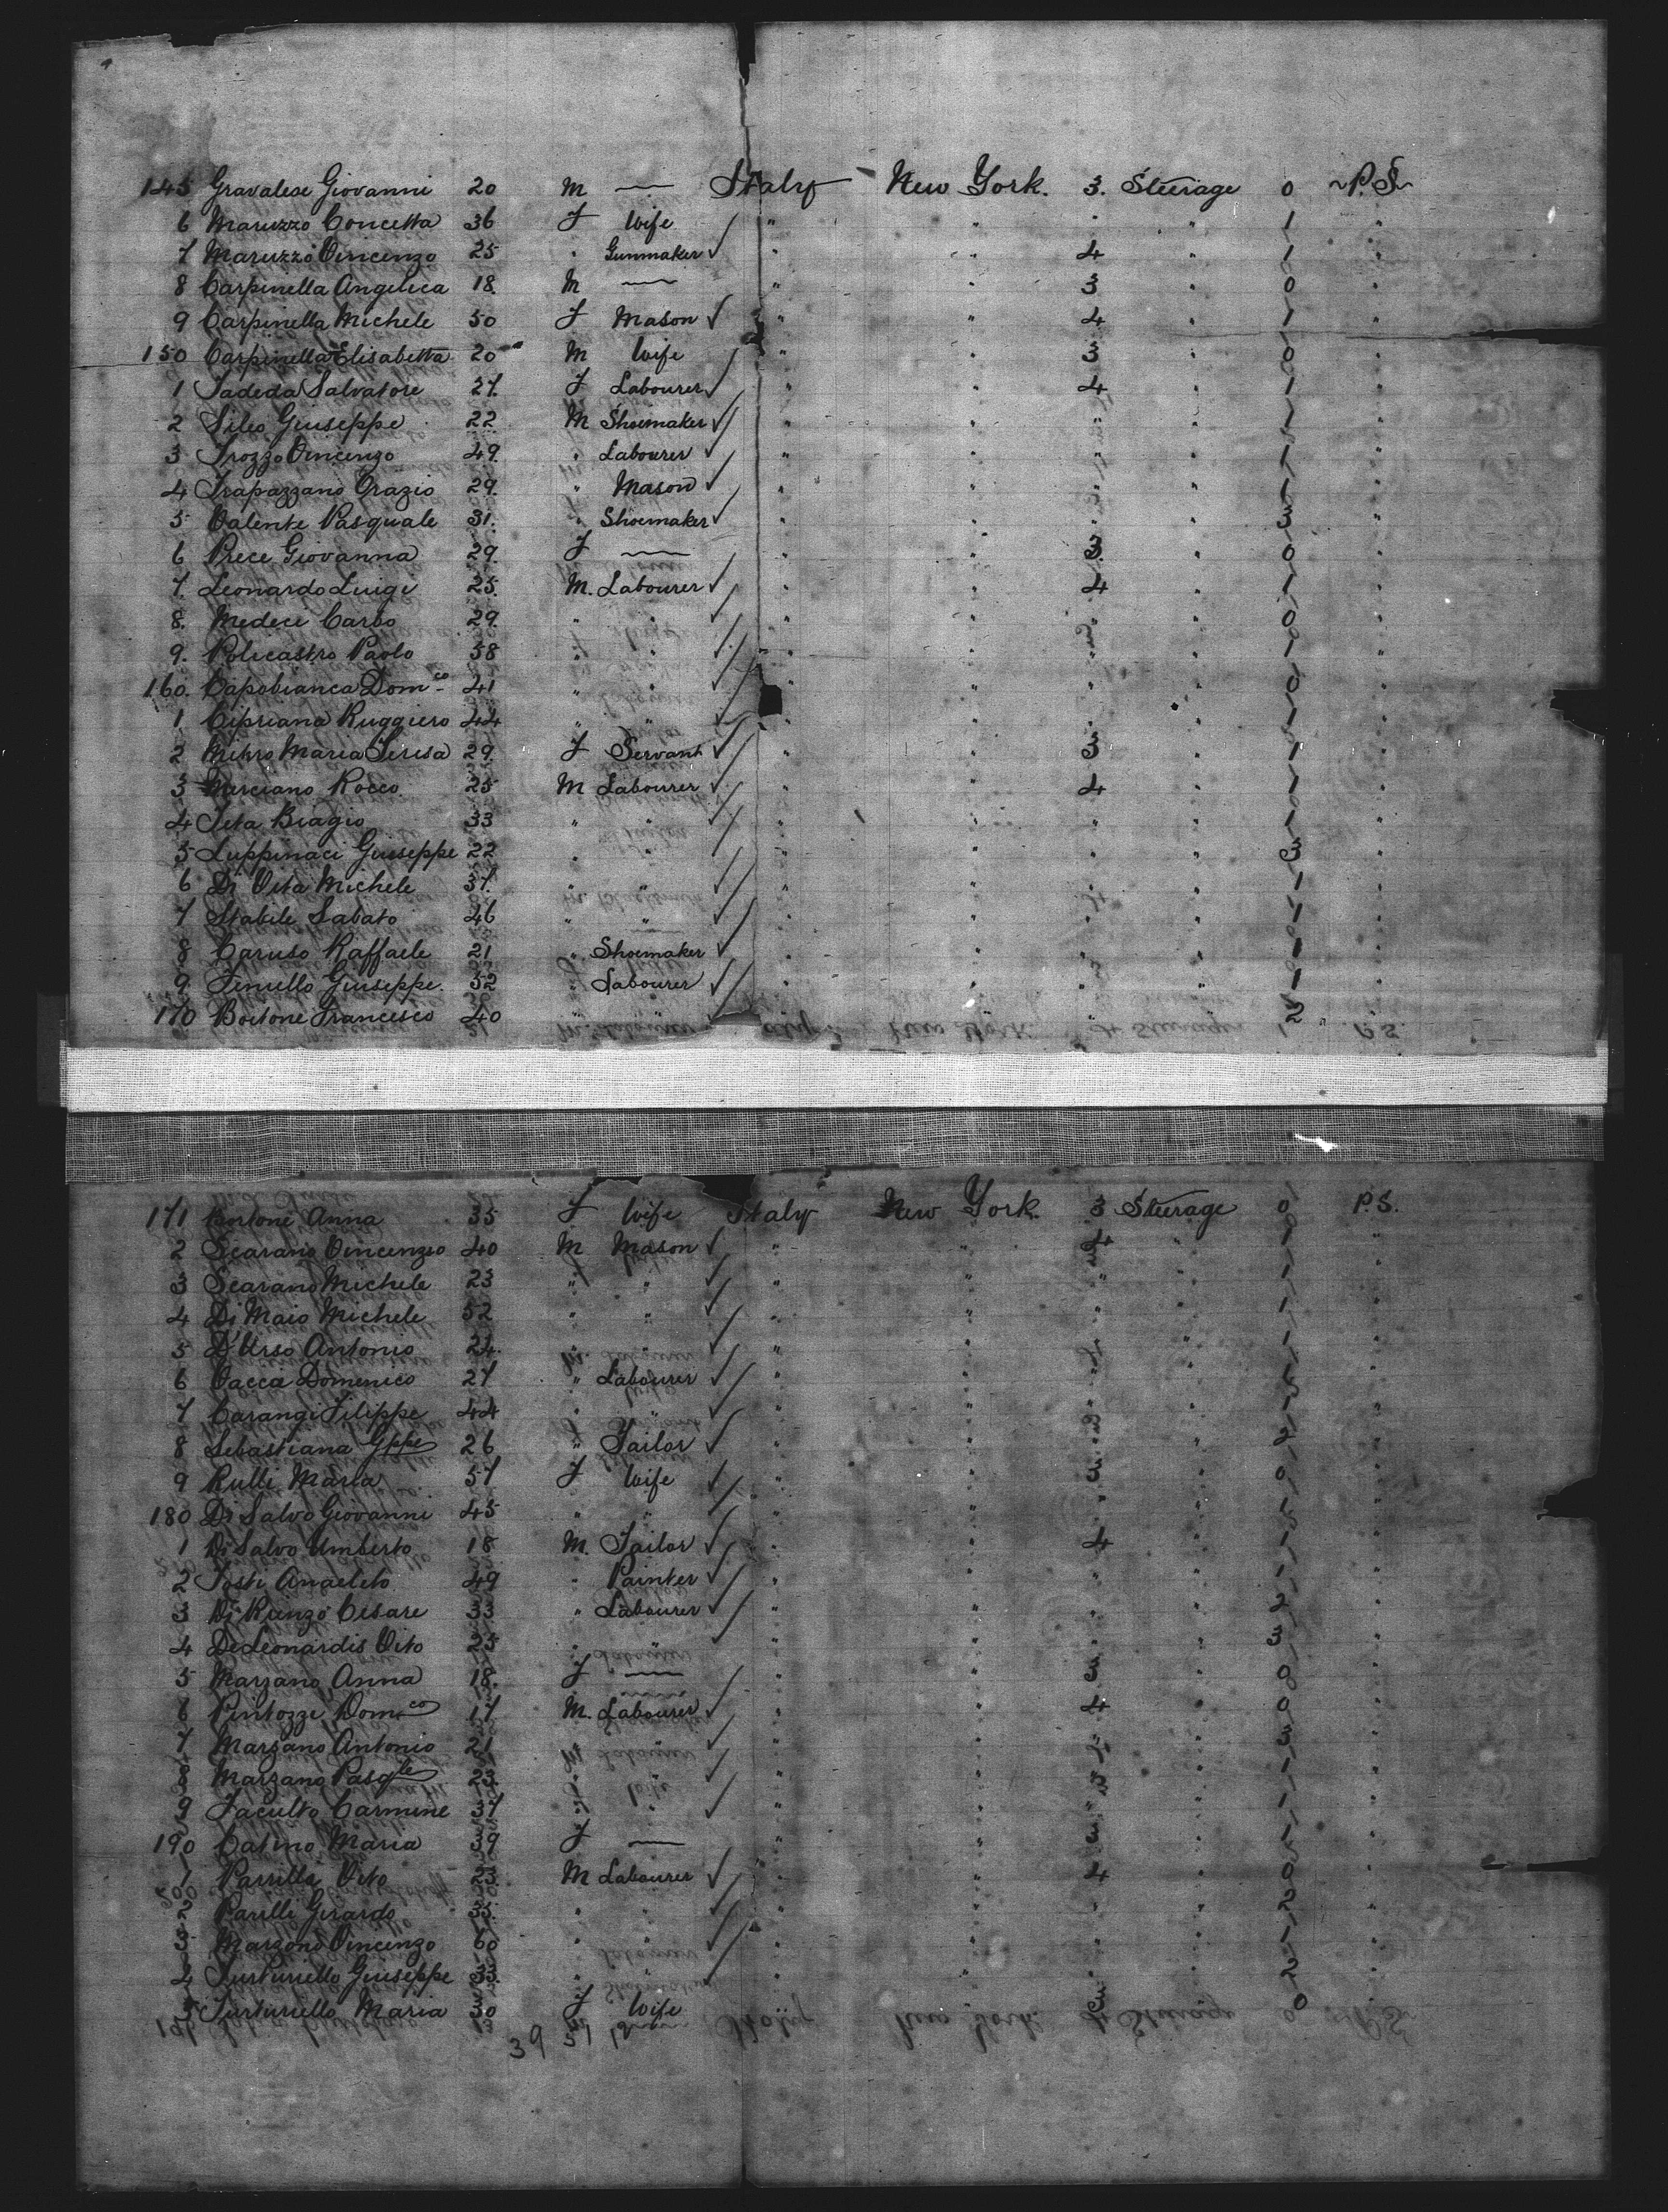 145 Gravalese Giovanni 20 M — Italy New York. 3. Steerage 0 P.S.
6 Maruzzo Concetta 36 F Wife " " " " 1 "
7 Maruzzo Vincenzo 25 " Gunmaker " " 4 " 1 "
8 Carpinella Angelica 18. M — " " 3 " 0 "
9 Carpinella Michele 50 F Mason " " 4 " 1 "
150 Carpinella Elisabetta 20 M Wife " " 3 " 0 "
1 Tadeda Salvatore 27. F Labourer " " 4 " 1 "
2 Sileo Giuseppe 22 M Shoemaker " " " " 1 "
3 Trozzo Vincenzo 49. " Labourer " " " " 1 "
4 Trapazzano Orazio 29. " Mason " " " " 1 "
5 Valente Pasquale 31. " Shoemaker " " " " 3 "
6 Prece Giovanna 29. F — " " 3. " 0 "
7. Leonardo Luigi 25. M. Labourer " " 4 " 1 "
8. Medeci Carbo 29. " " " " " " 0 "
9. Policastro Paolo 38 " " " " " " 1 "
160. Capobianca Dom.co 41 " " " " " " 0 "
1 Cipriana Ruggiero 44 " " " " " " 1 "
2 Maria Teresa 29. F Servant " " 3 " 1 "
3 Merciano Rocco 25 M Labourer " " 4 " 1 "
4 Teta Biagio 33 " " " " " " 1 "
5 Luppinaci Giuseppe 22 " " " " " " 3 "
6 Di Vita Michele 37. " " " " " " 1 "
7 Stabile Sabato 46 " " " " " " 1 "
8 Caruso Raffaele 21 " Shoemaker " " " " 1 "
9 Temello Giuseppe. 52 " Labourer " " " " 1 "
170 Boitone Francesco 40 2 "
171 Anna 35 F Wife Italy New York. 3 Steerage 0 P.S.
2 Scarano Vincenzo 40 M Mason " " 4 " 1 "
3 Scarano Michele 23 " " " " " " 1 "
4 Di Maio Michele 52 " " " " " " 1 "
5 D'Urso Antonio 24. " " " " " " 1 "
6 Vacca Domenico 27 " Labourer " " " " 1 "
7 Carangi Filippe 44 " " " " " " 1 "
8 Sebastiana Gppe 26 " Tailor " " " " 2 "
9 Rulli Maria 57 F Wife " " 3 " 0 "
180 Di Salvo Giovanni 45 " " " " " " "
1 Di Salvo Umberto 18 M. Tailor " " 4 " 1 "
2 Tosti Anacleto 49 " Painter " " " " 1 "
3 Di Rienzo Cesare 33 " Labourer " " " " 2 "
4 De Leonardis Vito 25 " " " " " 3 "
5 Marzano Anna 18. F — " " 3 " 0 "
6 Pintozzi Dom.co 17 M. Labourer " " 4 " 0 "
7 Marzano Antonio 21 " " " " " 3 "
8 Marzano Pasqle 23. " " " " " " 1 "
9 Taculto Carmine 37 " " " " " " 1 "
190 Catino Maria 39 F — " " 3 " 1 "
1 Parrilla Vito 23. M Labourer " " 4 " 0 "
2 Parilli Girardo 35. " " " " " " 2 "
3 Marzono Vincenzo 60 " " " " " " 1 "
4 Turturiello Giuseppe 33. " " " " " " 2 "
5 Turturiello Maria 30 F Wife 3 0
39 57